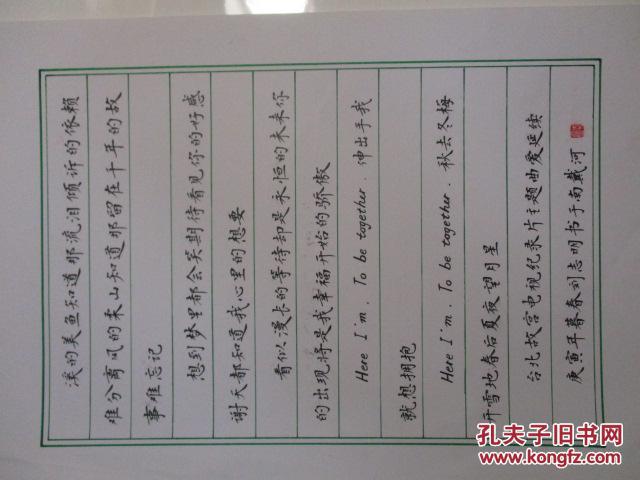 溪的美鱼知道那流泪倾诉的依赖
难分离风的朱山知道那留在千年的故
事难忘记
想到梦里都会笑期待看见你的好感
谢天都知道我心里的想要
看似漫长的等待却是永恒的未来你
的出现将是我幸福开始的骄傲
Here I'm. To be together. 伸出手我
就想拥抱
Here I'm. To be together. 秋去冬梅
开雪地春后夏夜望月星
台北故宫电视纪录片主题曲爱延续
庚寅年暮春刘志明书于南戴河
孔夫子旧书网
www.kongfz.com